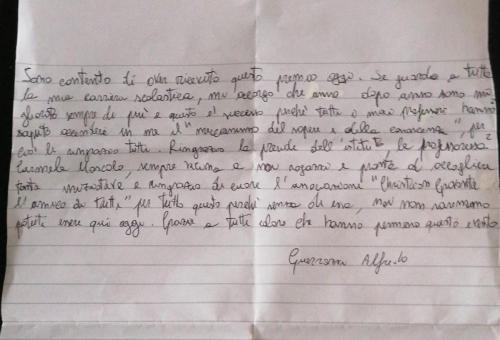 Sono contento di aver ricevuto questo premio oggi. Se guardo a tutta
la mia carriera scolastica, mi accorgo che anno dopo anno sono
sempre di più e questo è successo perché tutti i miei professori hanno
saputo accendere in me il "meccanismo del sapere e della conoscenza", per
ciò li ringrazio tutti. Ringrazio la preside dell'istituto, la professoressa
Carmela Mascolo, sempre vicina a noi ragazzi e pronta ad accogliere
iniziative e ringrazio di cuore l'associazione
l'amico di tutti" per tutto questo perché senza di essa, noi non saremmo
potuti essere qui oggi. Grazie a tutti coloro che hanno permesso questo evento
Alfredo